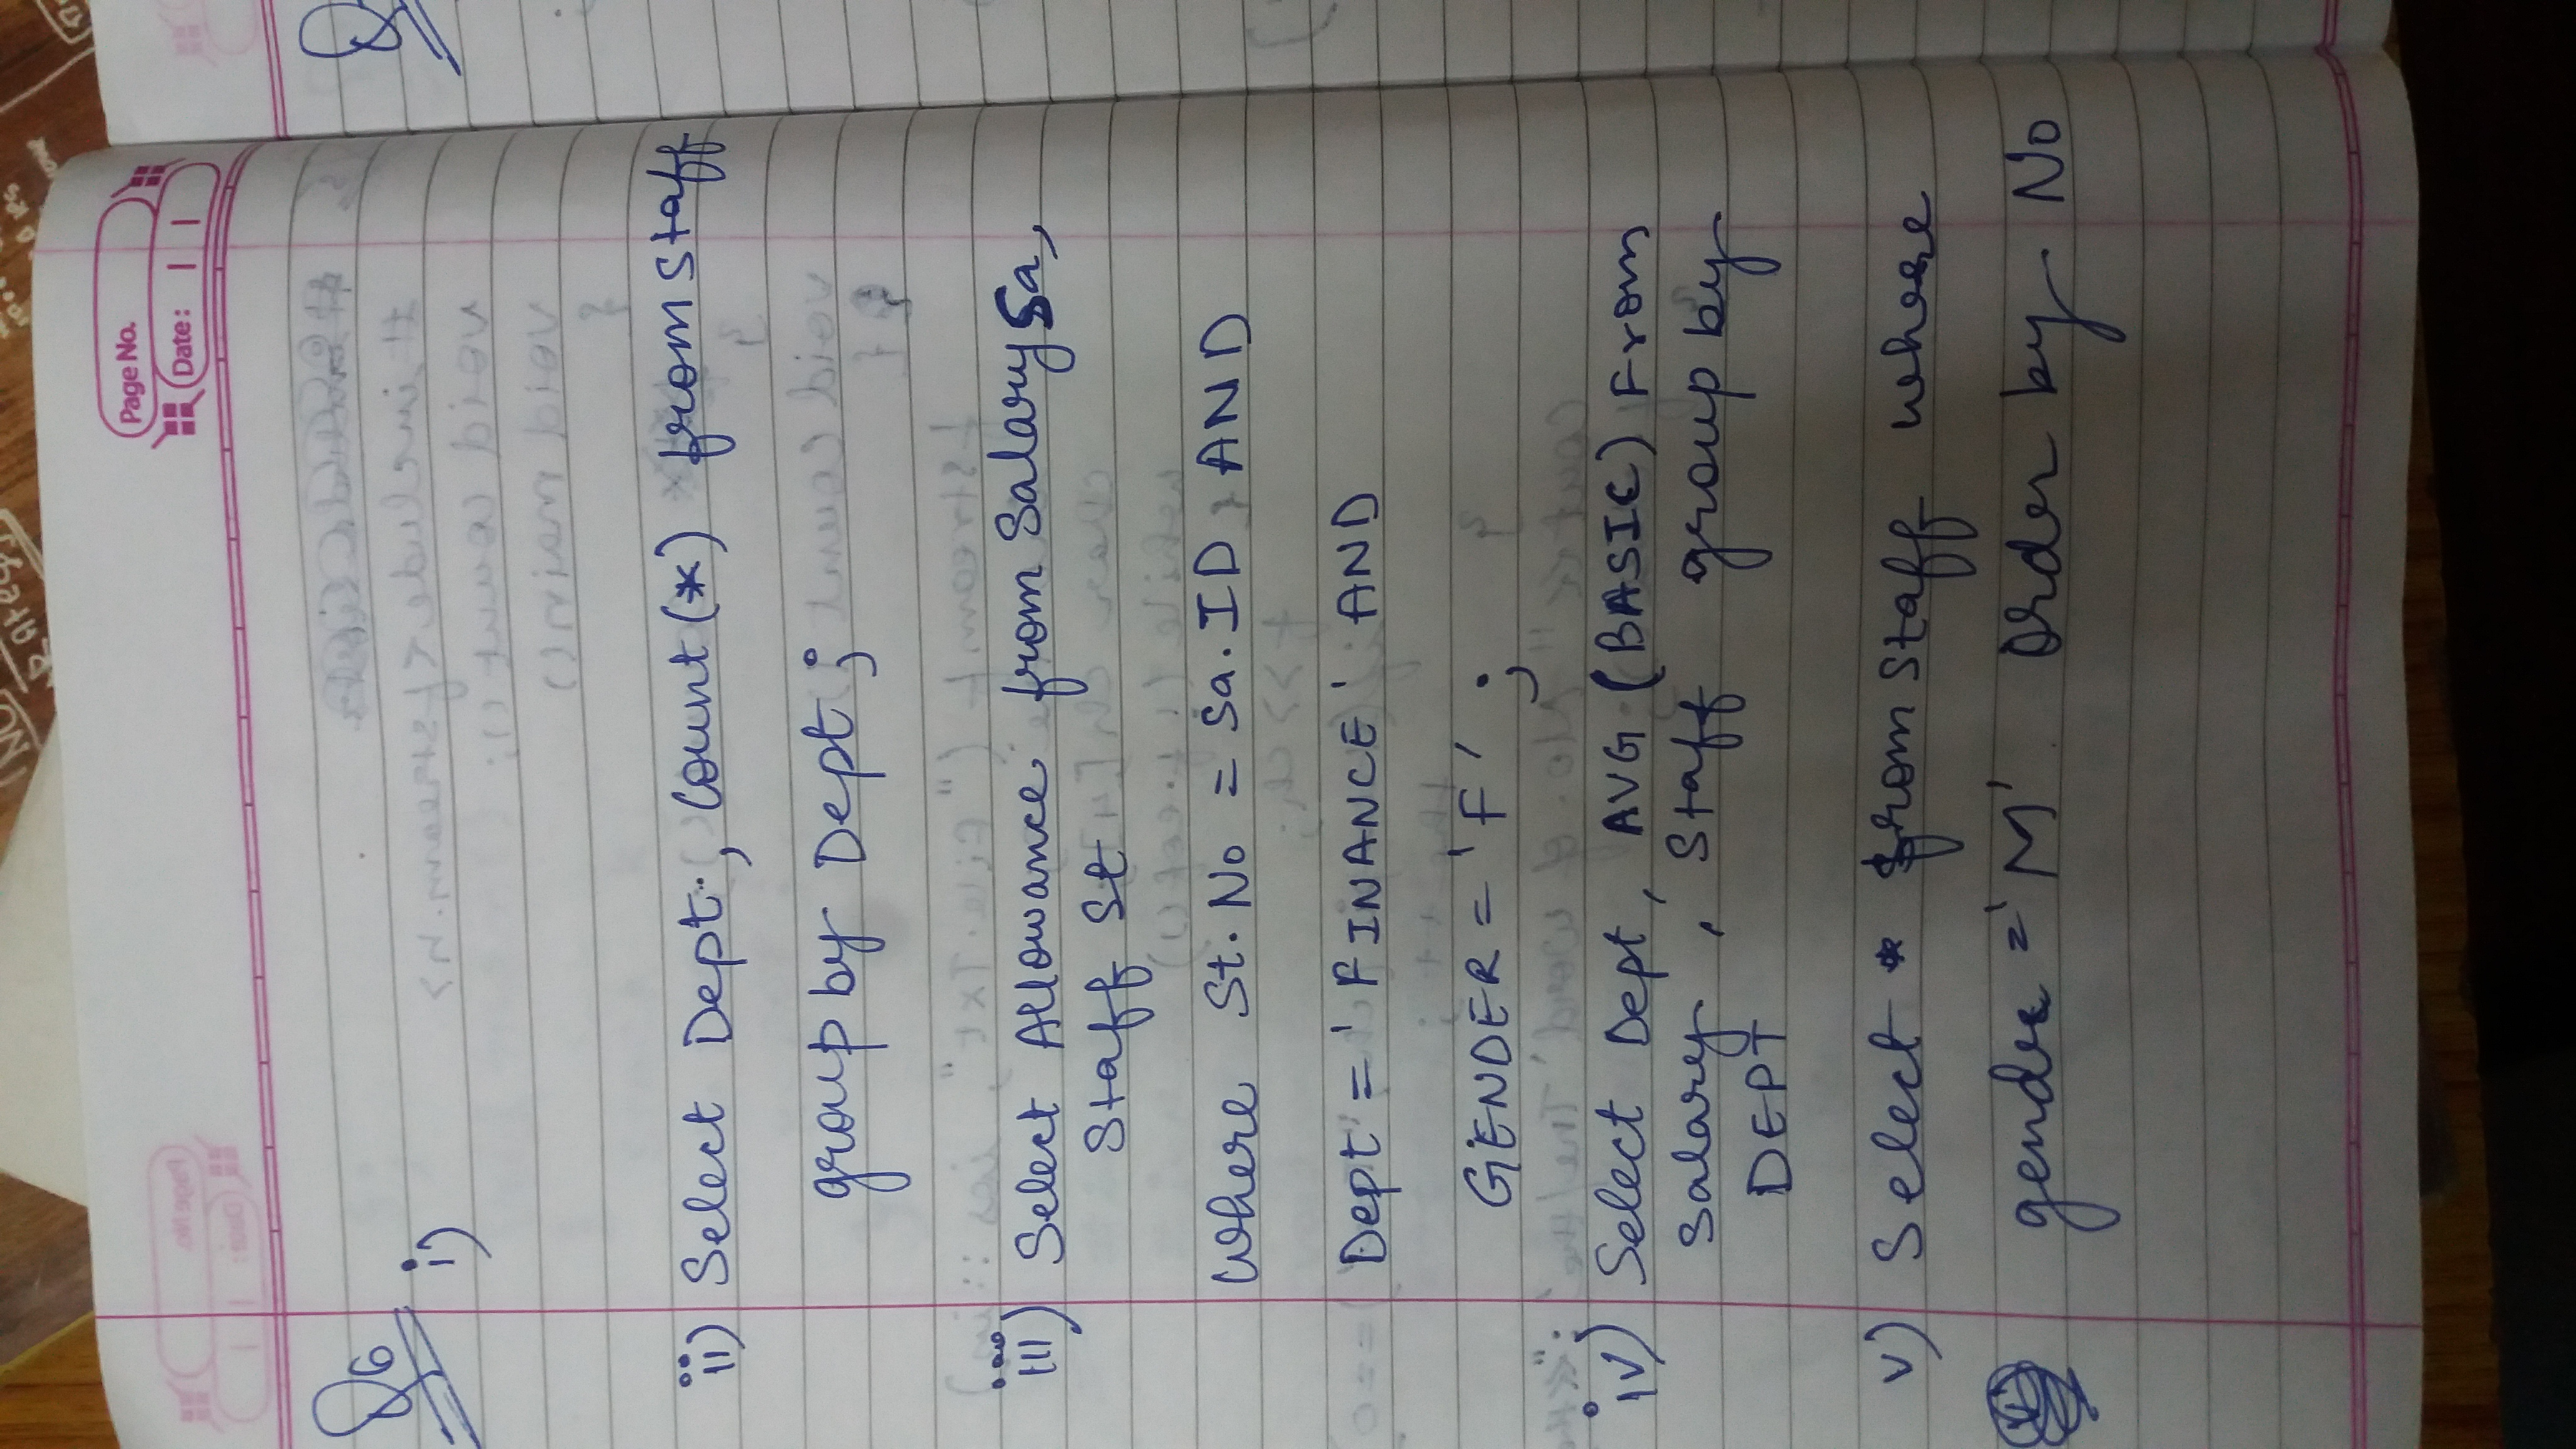 Page No.
Date:
Q6
i)
ii) Select Dept., Count(*) from Staff
group by Dept ;
iii) Select Allowance from Salary Sa,
Staff St
Where St. No = Sa. ID AND
Dept = 'FINANCE' AND
GENDER = 'F' ;
iv) Select Dept, AVG (BASIC) From
Salary , Staff group by
DEPT
v) Select * from Staff where
gender = 'M' Order by No